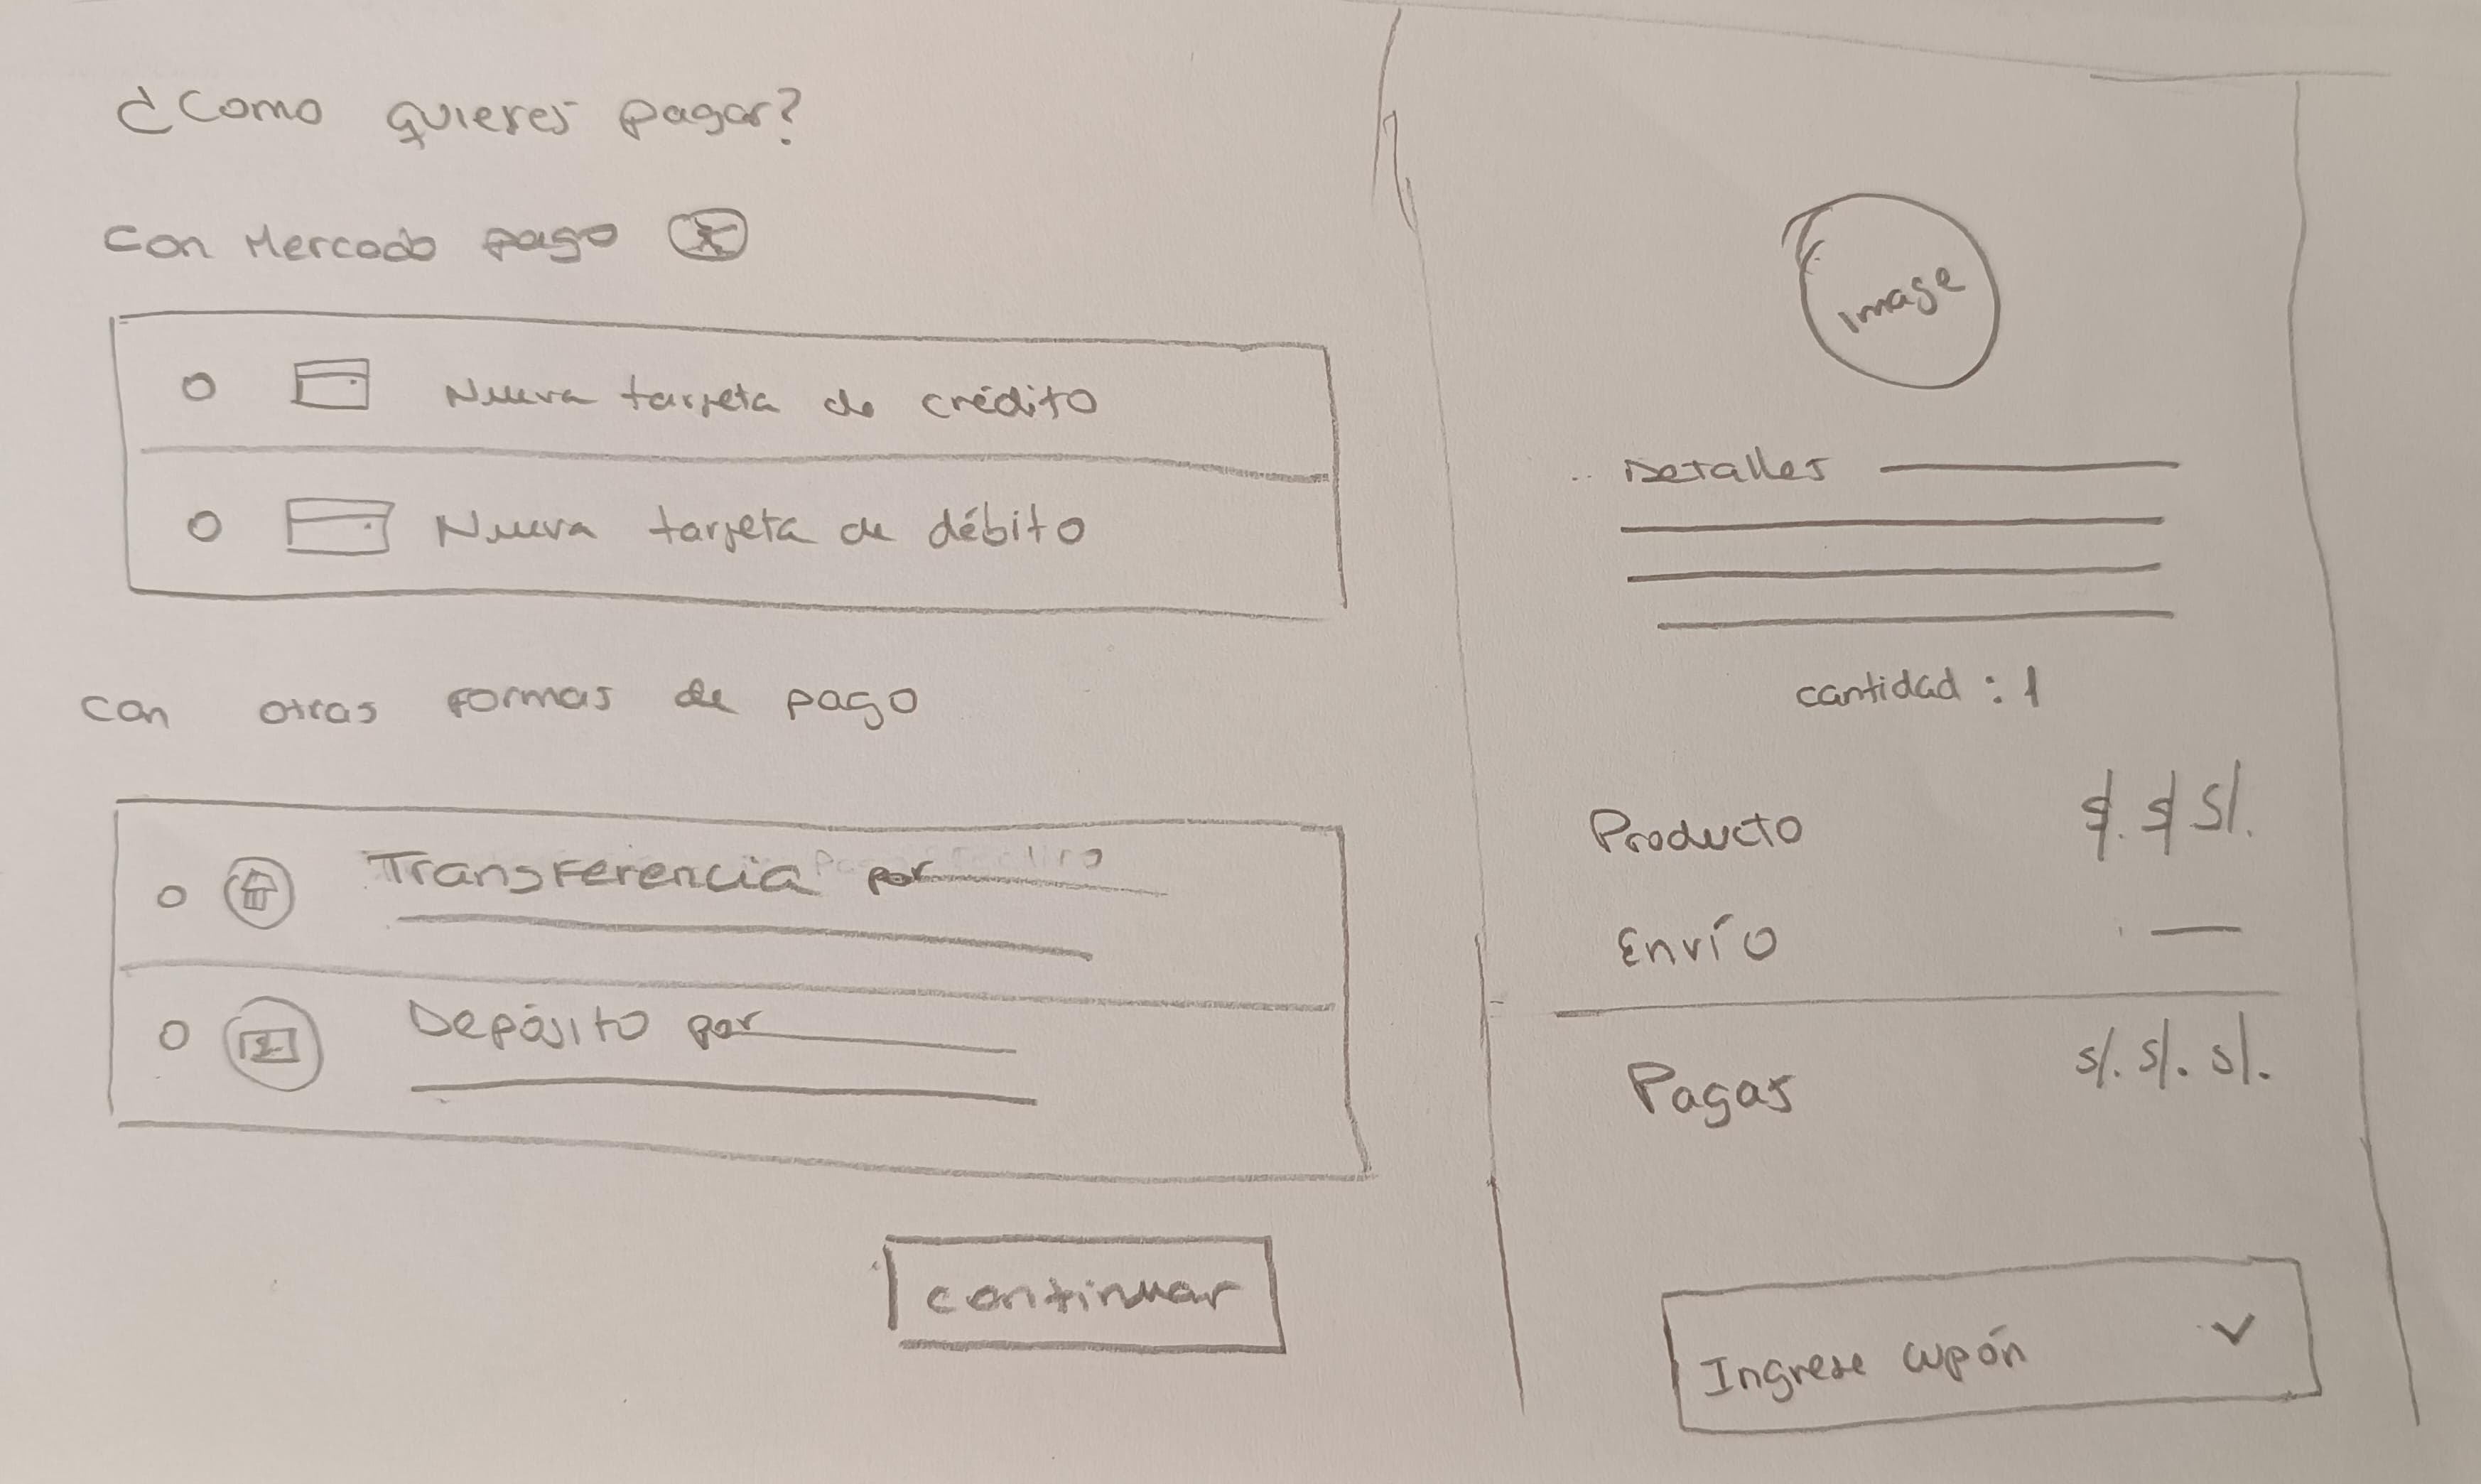 ¿Como quieres pagar?
Con Mercado pago
Nueva tarjeta de crédito
Nueva tarjeta de débito
Con otras formas de pago
Transferencia por
Depósito por
continuar
image
Detalles
cantidad : 1
Producto $. $ S/.
Envío
Pagas S/. S/. S/.
Ingrese cupón